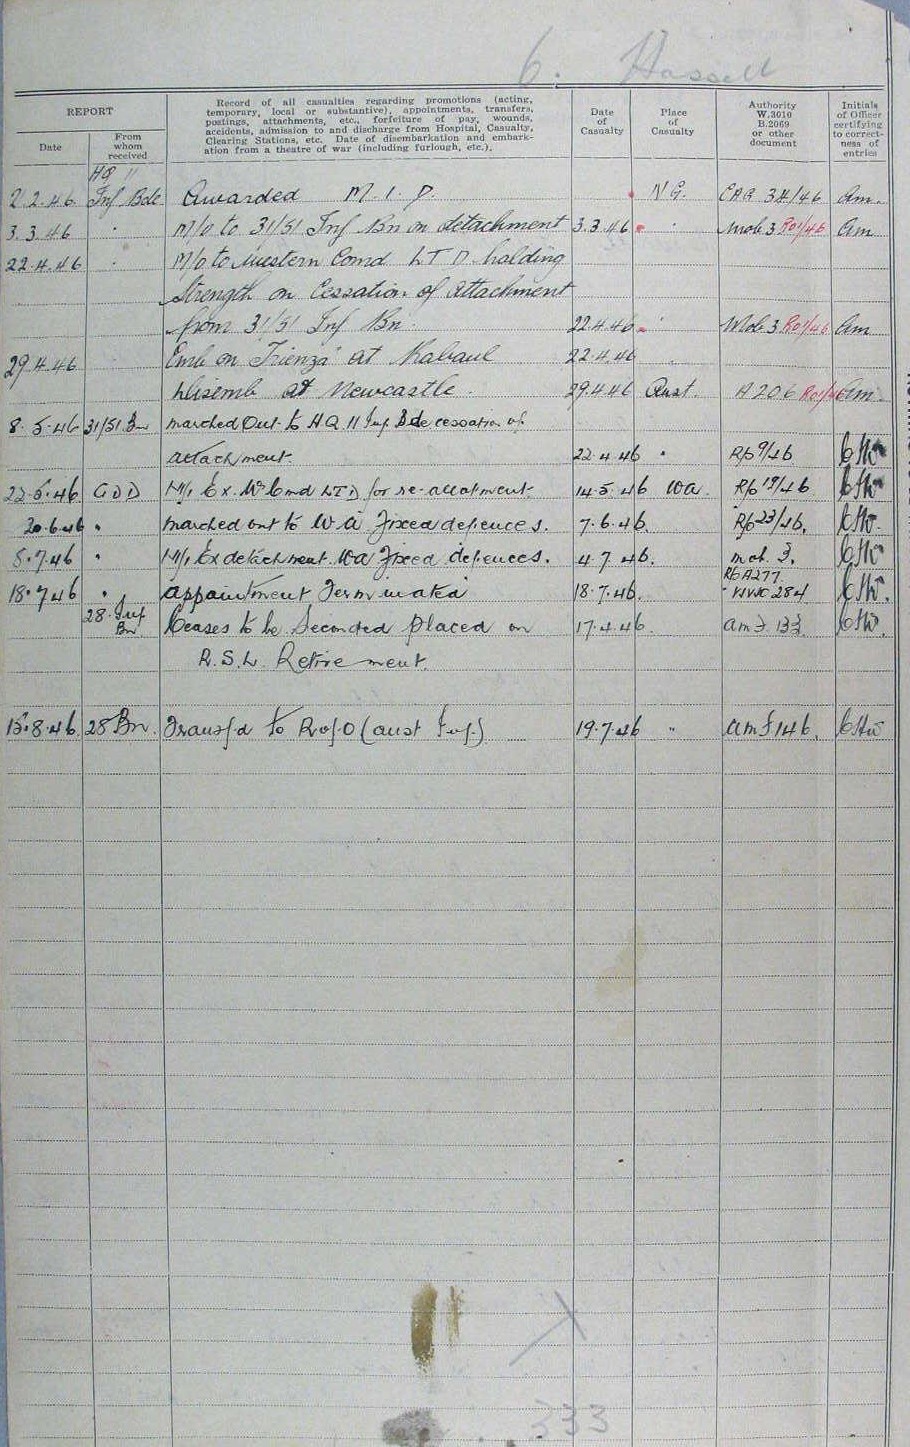 6. Hassell
REPORT
Date
From whom received
Record of all casualties regarding promotions (acting,
temporary, local or substantive), appointments, transfers,
postings, attachments, etc., forfeiture of pay, wounds,
accidents, admission to and discharge from Hospital, Casualty,
Clearing Stations, etc. Date of disembarkation and embark-
ation from a theatre of war (including furlough, etc.).
Date of Casualty
Place of Casualty
Authority W.3010 B.2069 or other document
Initials of Officer certifying to correct- ness of entries
HQ 11
2.2.46 Inf Bde Awarded M.I.D. N.G. CAG 34/46 Am.
3.3.46 " M/o to 31/51 Inf Bn on detachment 3.3.46 " Mob 3 Ro1/46 Am
22.4.46 " M/o to Western Comd LTD holding
Strength on Cessation of Attachment
from 31/51 Inf Bn. 22.4.46 " Mob 3 Ro1/46 Am
29.4.46 " Emb on "Trienza" at Rabaul 22.4.46 "
Disemb at Newcastle. 29.4.46 Aust. A206 Ro1/46 Am.
8.5.46 31/51 Bn marched Out to HQ 11 Inf Bde cessation of
attachment. 22.4.46 " Ro 9/46
22.5.46 GDD M/i Ex. W. Cmd LTD for re-allotment 14.5.46 WA. Ro 19/46
20.6.46 " marched out to W A Fixed defences. 7.6.46. Ro 23/46.
5.7.46 " M/i Ex detachment WA Fixed defences. 4.7.46. mob 3.
18.7.46 " appointment Terminated 18.7.46. Ro A277 284
28 Inf Bn Ceases to be Seconded placed on 17.4.46. amf 133
R.S.L. Retirement.
13.8.46. 28 Bn. Transfd to RofO (aust Inf.) 19.7.46 " amf 146.
333